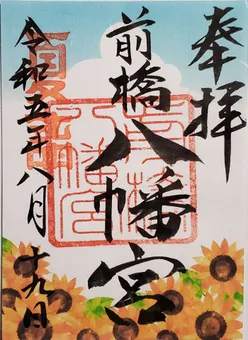 奉拝
前橋八幡宮
令和五年八月十九日